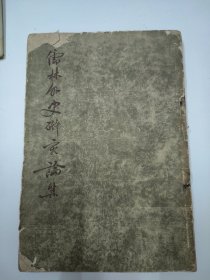 儒林外史研究論集